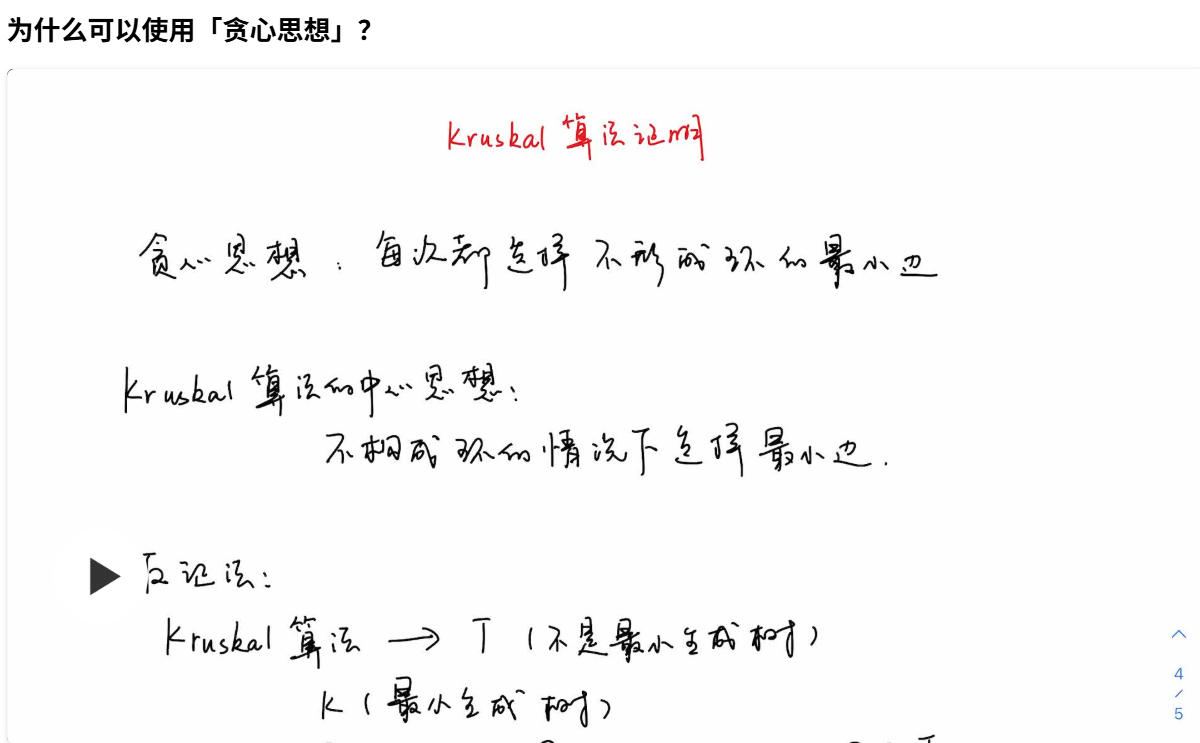 为什么可以使用「贪心思想」?
Kruskal 算法证明
贪心思想：每次都选择不形成环的最小边
Kruskal 算法的中心思想：
不构成环的情况下选择最小边.
反证法：
Kruskal 算法 → T (不是最小生成树)
K (最小生成树)
4
/
5